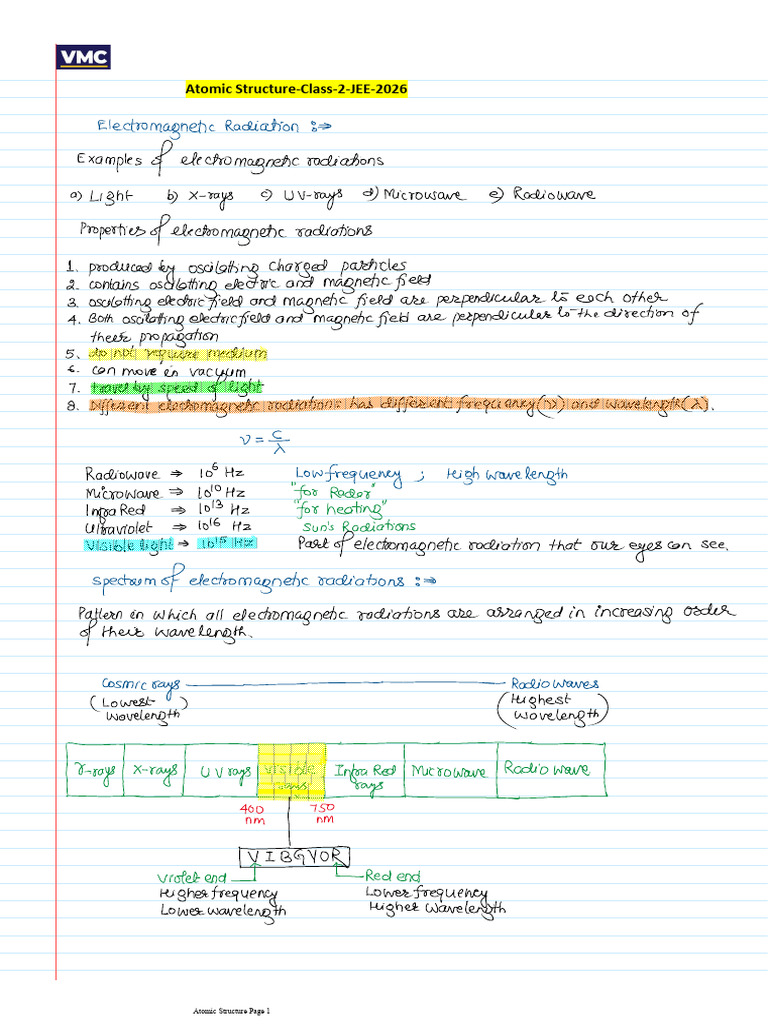 VMC
Atomic Structure-Class-2-JEE-2026
Electromagnetic Radiation :⇒
Examples of electromagnetic radiations
a) Light b) X-rays c) UV-rays d) Microwave e) Radiowave
Properties of electromagnetic radiations
1. produced by oscillatting charged particles
2. contains oscillatting electric and magnetic field
3. oscillatting electric field and magnetic field are perpendicular to each other
4. Both oscillatting electric field and magnetic field are perpendicular to the direction of
their propagation
5. do not require medium
6. can move in vacuum
7. travel by speed of light
8. Different electromagnetic radiations has different frequency(ν) and wavelength(λ).
ν = c/λ
Radiowave ⇒ 10⁶ Hz Low frequency ; High wavelength
Microwave ⇒ 10¹⁰ Hz "for Rader"
Infra Red ⇒ 10¹³ Hz "for heating"
Ultraviolet ⇒ 10¹⁶ Hz sun's Radiations
visible light ⇒ 10¹⁵ Hz Part of electromagnetic radiation that our eyes can see.
spectrum of electromagnetic radiations :⇒
Pattern in which all electromagnetic radiations are arranged in increasing order
of their wavelength.
Cosmic rays Radio waves
(Lowest wavelength) (Highest wavelength)
γ-rays X-rays UV rays visible rays Infra Red rays Microwave Radio wave
400 nm 750 nm
VIBGYOR
Violet end Red end
Higher frequency Lower frequency
Lower wavelength Higher wavelength
Atomic Structure Page 1